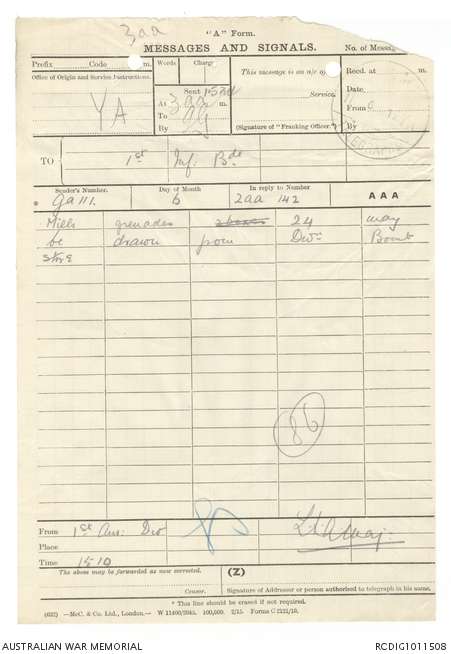 3aa
"A" Form.
MESSAGES AND SIGNALS.
No. of Messa
Prefix Code m.
Words Charge
This message is on a/c of
Recd. at m.
Office of Origin and Service Instructions.
YA
Sent
At 3aa m.
To
By
Service.
(Signature of "Franking Officer.")
Date
From
By
TO 1st Inf. Bde
Sender's Number. Day of Month In reply to Number AAA
* Ga 111. 6 2aa 142
Mills grenades 24 may
be drawn from Divn Bomb
store
86
From 1st Aus: Div
Place
Time 1510
The above may be forwarded as now corrected. (Z)
Censor. Signature of Addressor or person authorised to telegraph in his name.
* This line should be erased if not required.
(622) —McC. & Co. Ltd., London.— W 11400/2045. 100,000. 2/15. Forms C 2121/10.
AUSTRALIAN WAR MEMORIAL RCDIG1011508